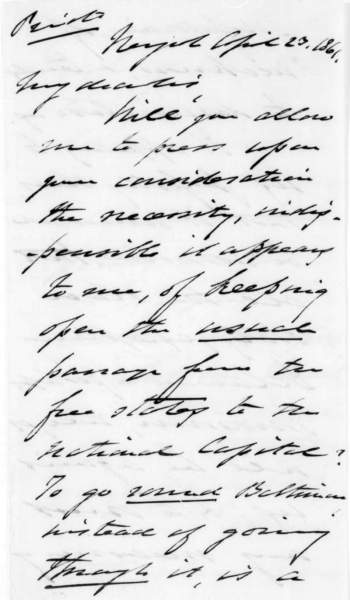 Private
New York April 23. 1861.
My dear Sir,
Will you allow
me to press upon
your consideration
the necessity, indis-
-pensible it appears
to me, of keeping
open the usual
passage from the
free states to the
National Capital?
To go round Baltimore
instead of going
through it, is a